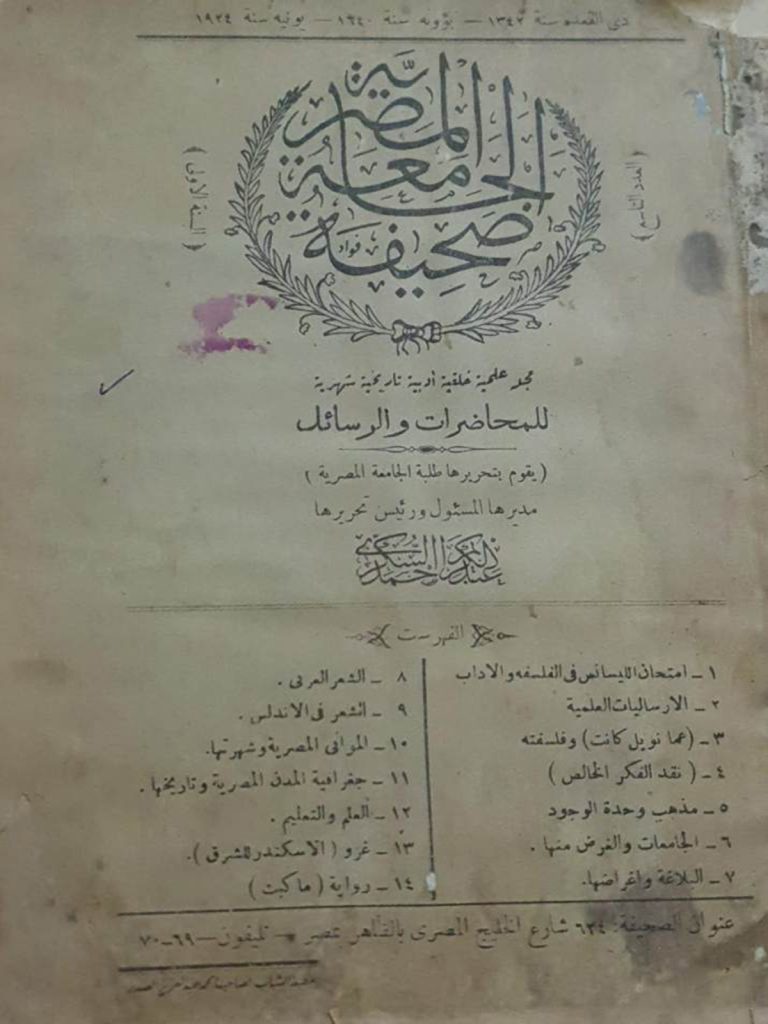 ذى القعدة سنة ١٣٤٢ — بؤونه سنة ١٦٤٠ — يونيه سنة ١٩٢٤
صحيفة الجامعة المصرية
( العدد التاسع )
( السنة الاولى )
فؤاد
مجلة علمية خلقية أدبية تاريخية شهرية
للمحاضرات والرسائل
( يقوم بتحريرها طلبة الجامعة المصرية )
مديرها المسئول ورئيس تحريرها
عبد الكريم احمد السكرى
الفهرست
١ ـ امتحان الليسانس فى الفلسفه والاداب
٢ ـ الارساليات العلمية
٣ ـ (عما نويل كانت) وفلسفته
٤ ـ ( نقد الفكر الخالص )
٥ ـ مذهب وحدة الوجود
٦ ـ الجامعات والغرض منها .
٧ ـ البلاغة واغراضها.
٨ ـ الشعر العربى .
٩ ـ الشعر فى الاندلس .
١٠ ـ الموانى المصرية وشهرتها.
١١ ـ جغرافية المدن المصرية وتاريخها .
١٢ ـ العلم والتعليم .
١٣ ـ غزو ( الاسكندر للشرق ).
١٤ ـ رواية ( ماكبت )
عنوان الصحيفة: ٦٢٤ شارع الخليج المصرى بالقاهر بمصر — تليفون — ٦٩ـ٧٠